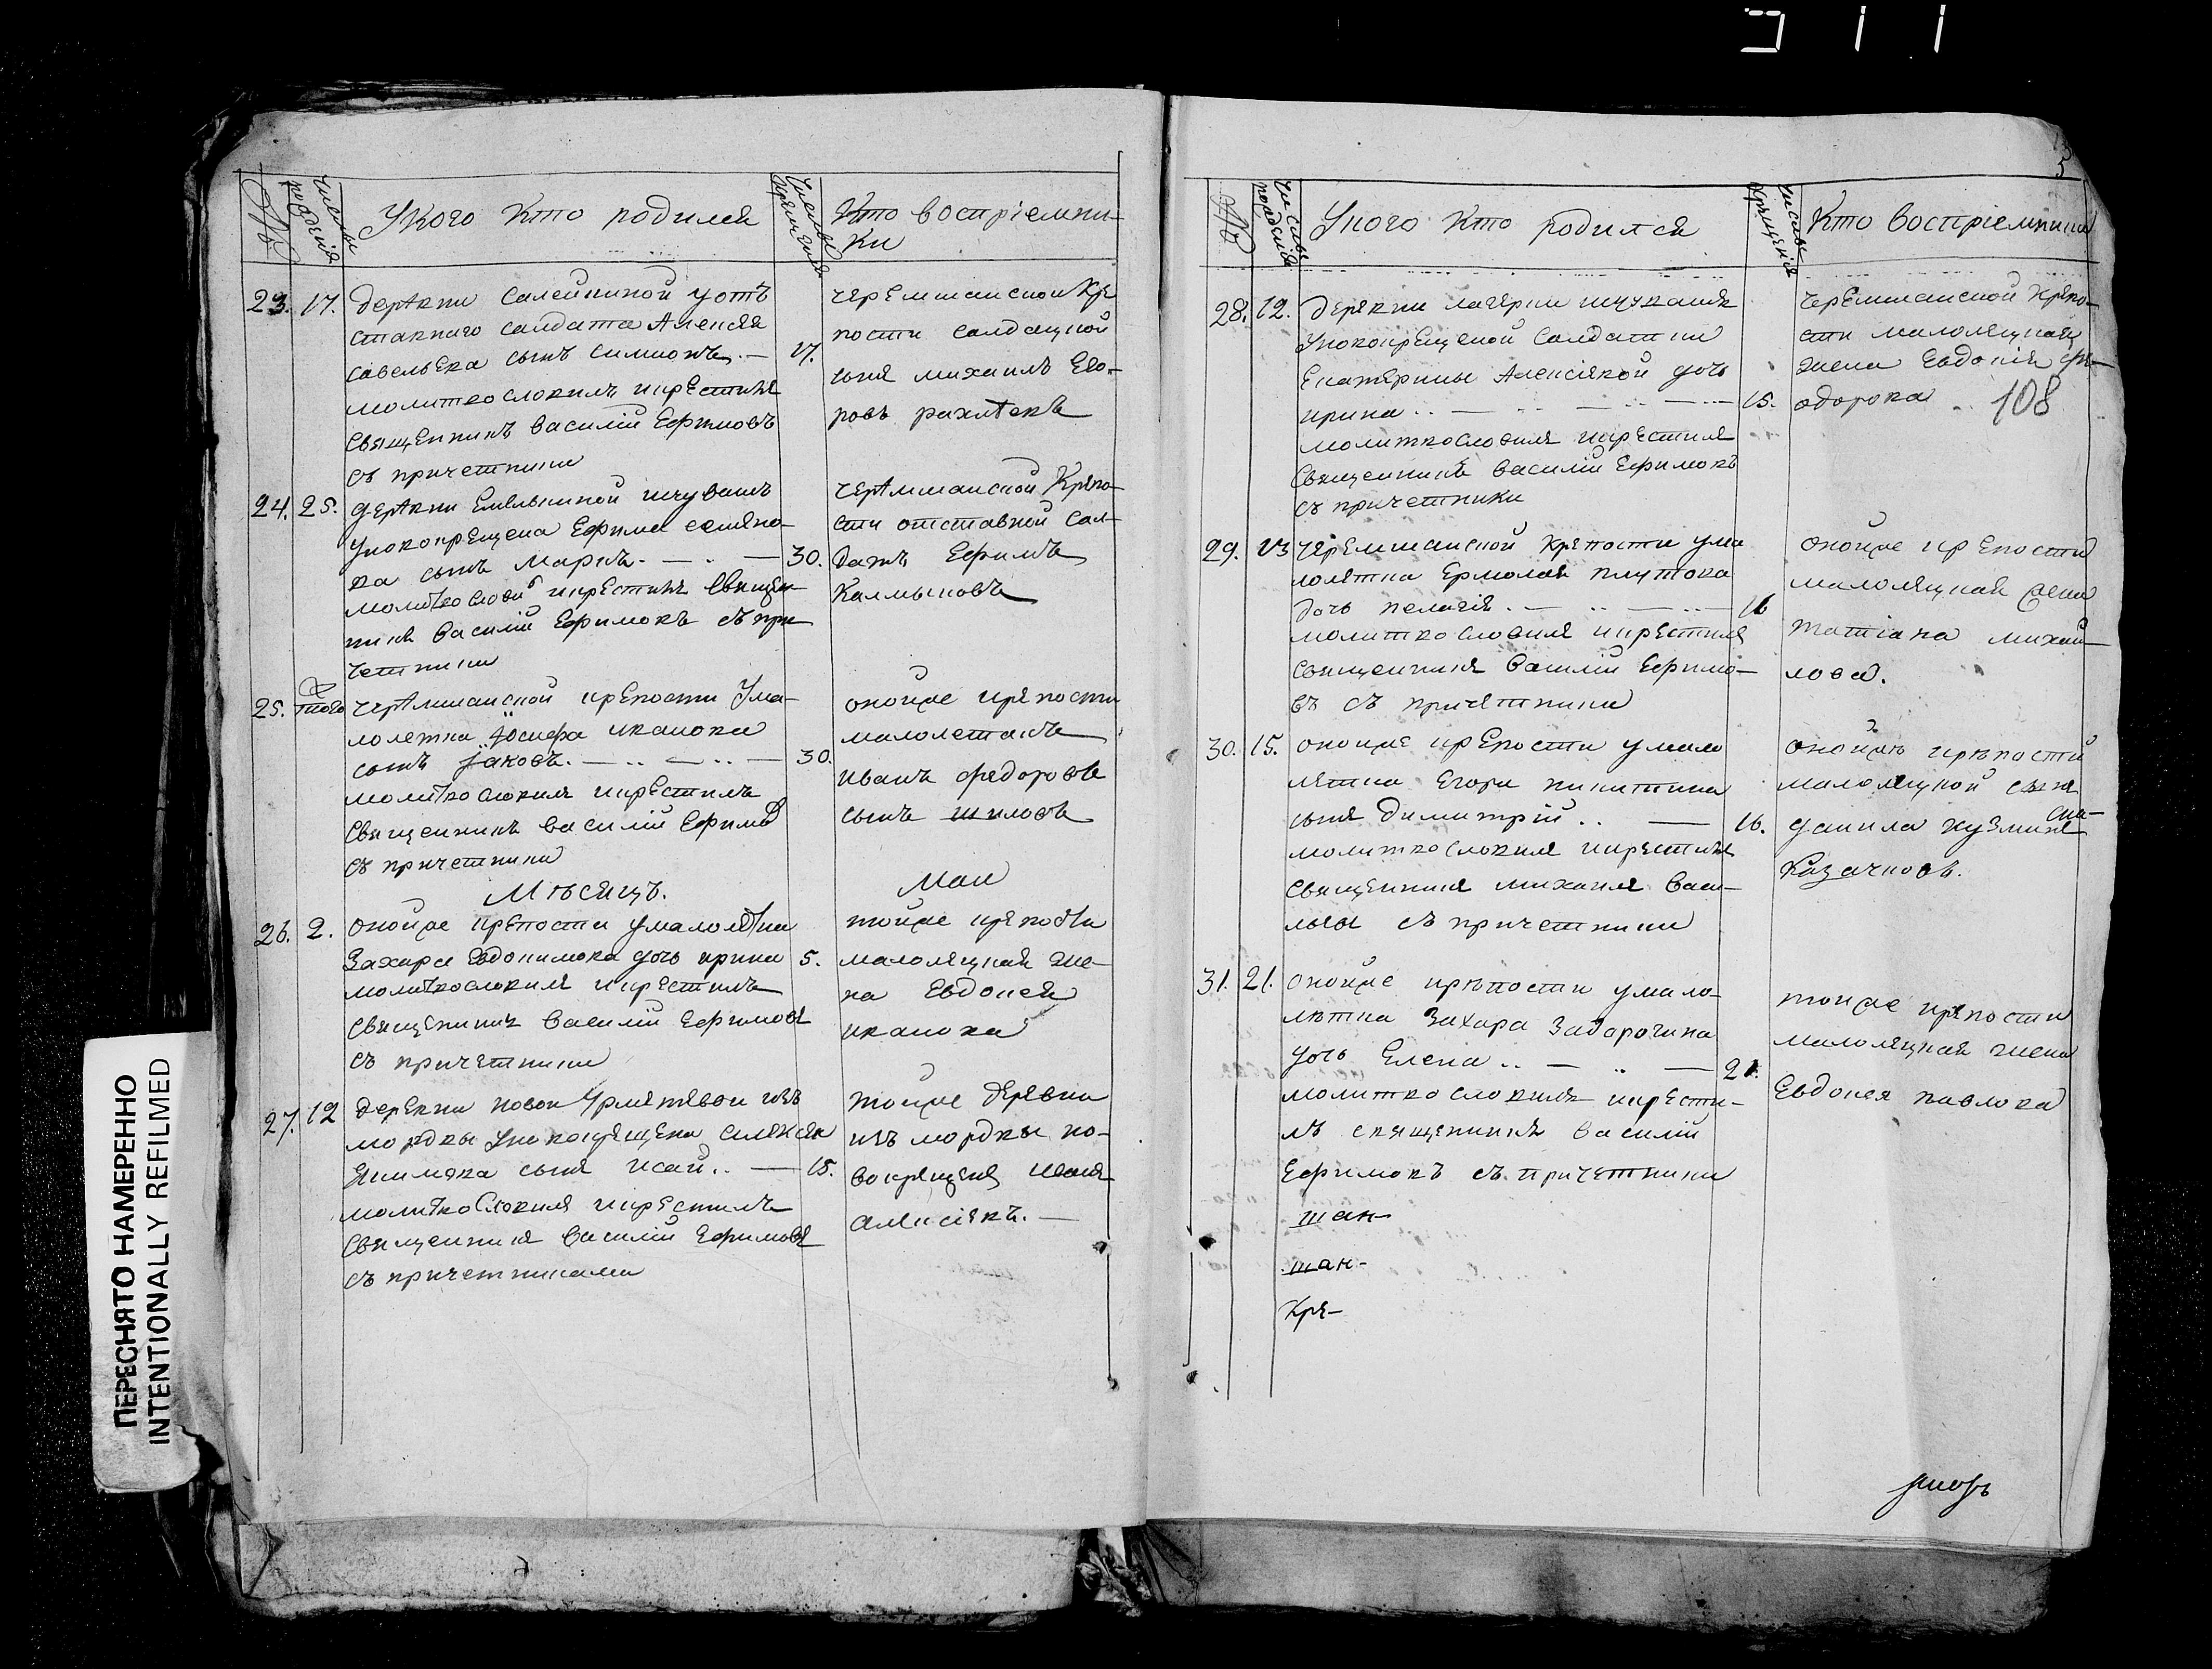 5
№
числы рождения
У кого кто родился
числы крещения
Кто восприемни-
ки
23. 17. деревни Салейкиной у отъ
ставного салдата Алексея
савельева сынъ симионъ. — 17.
молитвословилъ и крестилъ
священникъ василий Ефимовъ
съ причетники
черемшанской кре
пости салдацкой
сынъ михаилъ Его-
ровъ
24. 25. деревни Емелькиной ис чувашъ
у новокрещена Ефима семено-
ва сынъ Маркъ. — 30.
молитвослови и крестилъ священ-
никъ василий Ефимовъ съ при
четники
черемшанской крепо-
сти отставной сал-
датъ Ефимъ
Калмыковъ
25. того черемшанской крепости у ма-
лолетка Иосифа иванова
сынъ Iаковъ. — 30.
молитвословилъ и крестилъ
священникъ василий Ефимо
съ причетники
оной же крепости
малолетокъ
иванъ федоровъ
сынъ шиловъ
Мѣсяцъ. Маи
26. 2. оной же крепости у малолетка
Захара Евдокимова дочь ирина 5.
молитвословилъ и крестилъ
священникъ василий Ефимовъ
съ причетники
той же крепости
малолецкая же-
на Евдокея
иванова
27. 12 деревни новои Урметевои изъ
мордвы у новокрещена алексея
Екимова сынъ Исай.. — 15.
молитвословилъ и крестилъ
священникъ василий Ефимовъ
съ причетниками
той же деревни
изъ мордвы но-
вокрещенъ
алексеевъ. —
№
числы рождения
У кого кто родился
числы крещения
Кто восприемники
28. 12. деревни лагерки ис чувашъ
у новокрещеной салдатки
Екатерины Алексеевой дочь
ирина.. — 15.
молитвословилъ и крестилъ
священникъ василий Ефимовъ
съ причетники
черемшанской крепо-
сти малолецкая
жена Евдокия фе-
одорова
108
29. 13 черемшанской крепости у ма
лолетка Ермолая плутова
дочь пелагия. — 16
молитвословилъ и крестилъ
священникъ василий Ефимо-
въ съ причетники
оной же крепости
малолецкая жена
татиана михай-
лова.
30. 15. оной же крепости у мало
летка Егора никитина
сынъ Димитрий.. — 16.
молитвословилъ и крестилъ
священникъ михаилъ васи-
льевъ съ причетники
оной же крѣпости
малолецкой сынъ
данила кузминъ
Казачковъ.
31. 21. оной же крѣпости у мало-
лѣтка Захара Задорогина
дочь Елена.. — 21.
молитвословилъ и крести-
лъ священникъ василий
Ефимовъ съ причетники
той же крепости
малолецкая жена
Евдокея павлова
шан-
шан-
Кре-
ПЕРЕСНЯТО НАМЕРЕННО
INTENTIONALLY REFILMED